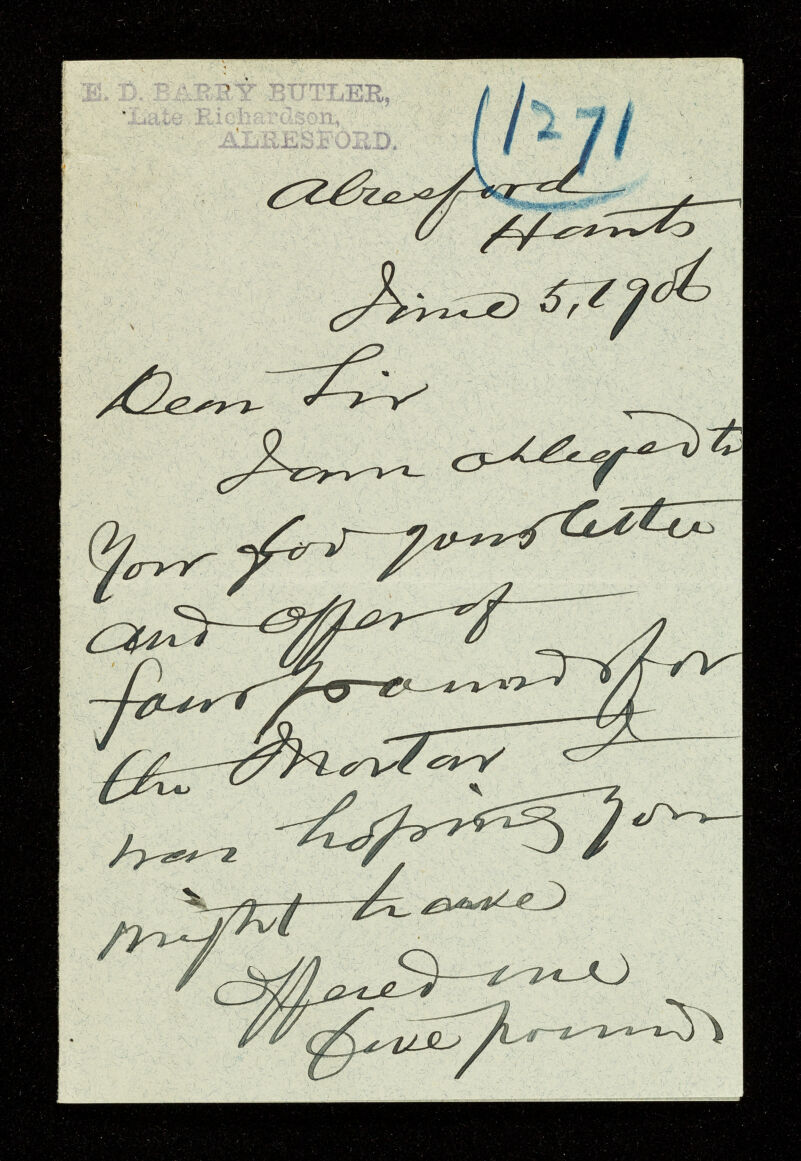 E. D. BARRY BUTLER,
Late Richardson,
ALRESFORD.
1271
Alresford
Hants
June 5, 1906
Dear Sir
I am obliged to
You for your letter
and offer of
four pounds for
the Mortar I
was hoping you
might have
offered me
five pounds